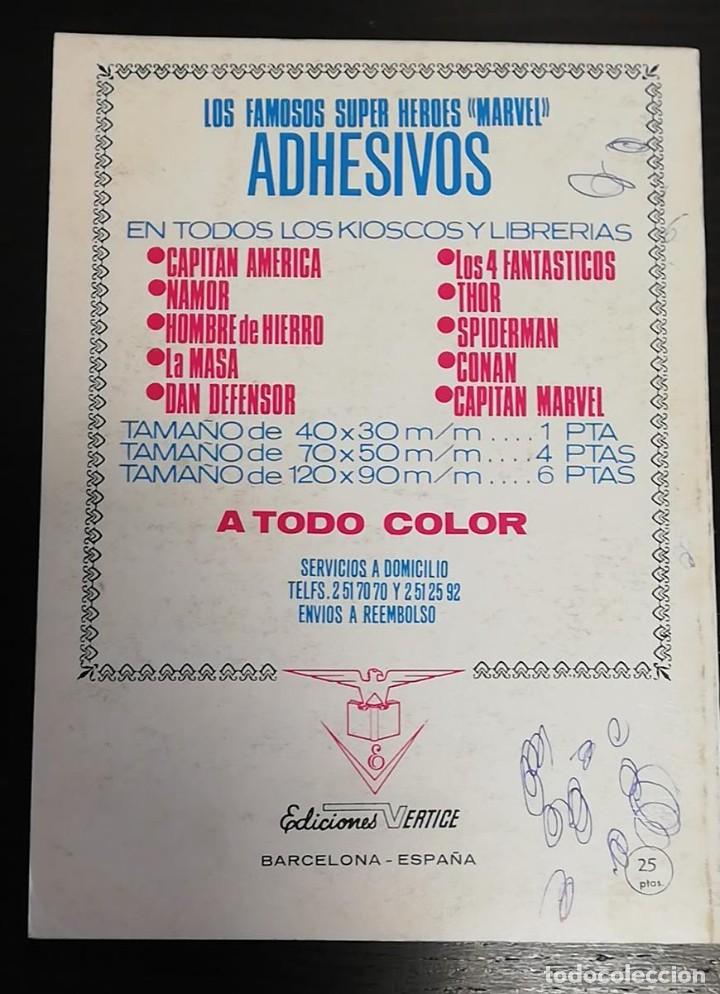 LOS FAMOSOS SUPER HEROES «MARVEL»
ADHESIVOS
EN TODOS LOS KIOSCOS Y LIBRERIAS
•CAPITAN AMERICA
•NAMOR
•HOMBRE de HIERRO
•La MASA
•DAN DEFENSOR
•Los 4 FANTASTICOS
•THOR
•SPIDERMAN
•CONAN
•CAPITAN MARVEL
TAMAÑO de 40x30 m/m....1 PTA
TAMAÑO de 70x50 m/m....4 PTAS
TAMAÑO de 120x90 m/m....6 PTAS
A TODO COLOR
SERVICIOS A DOMICILIO
TELFS. 2 51 70 70 Y 2 51 25 92
ENVIOS A REEMBOLSO
E
Ediciones VERTICE
BARCELONA - ESPAÑA
25
ptas.
todocoleccion